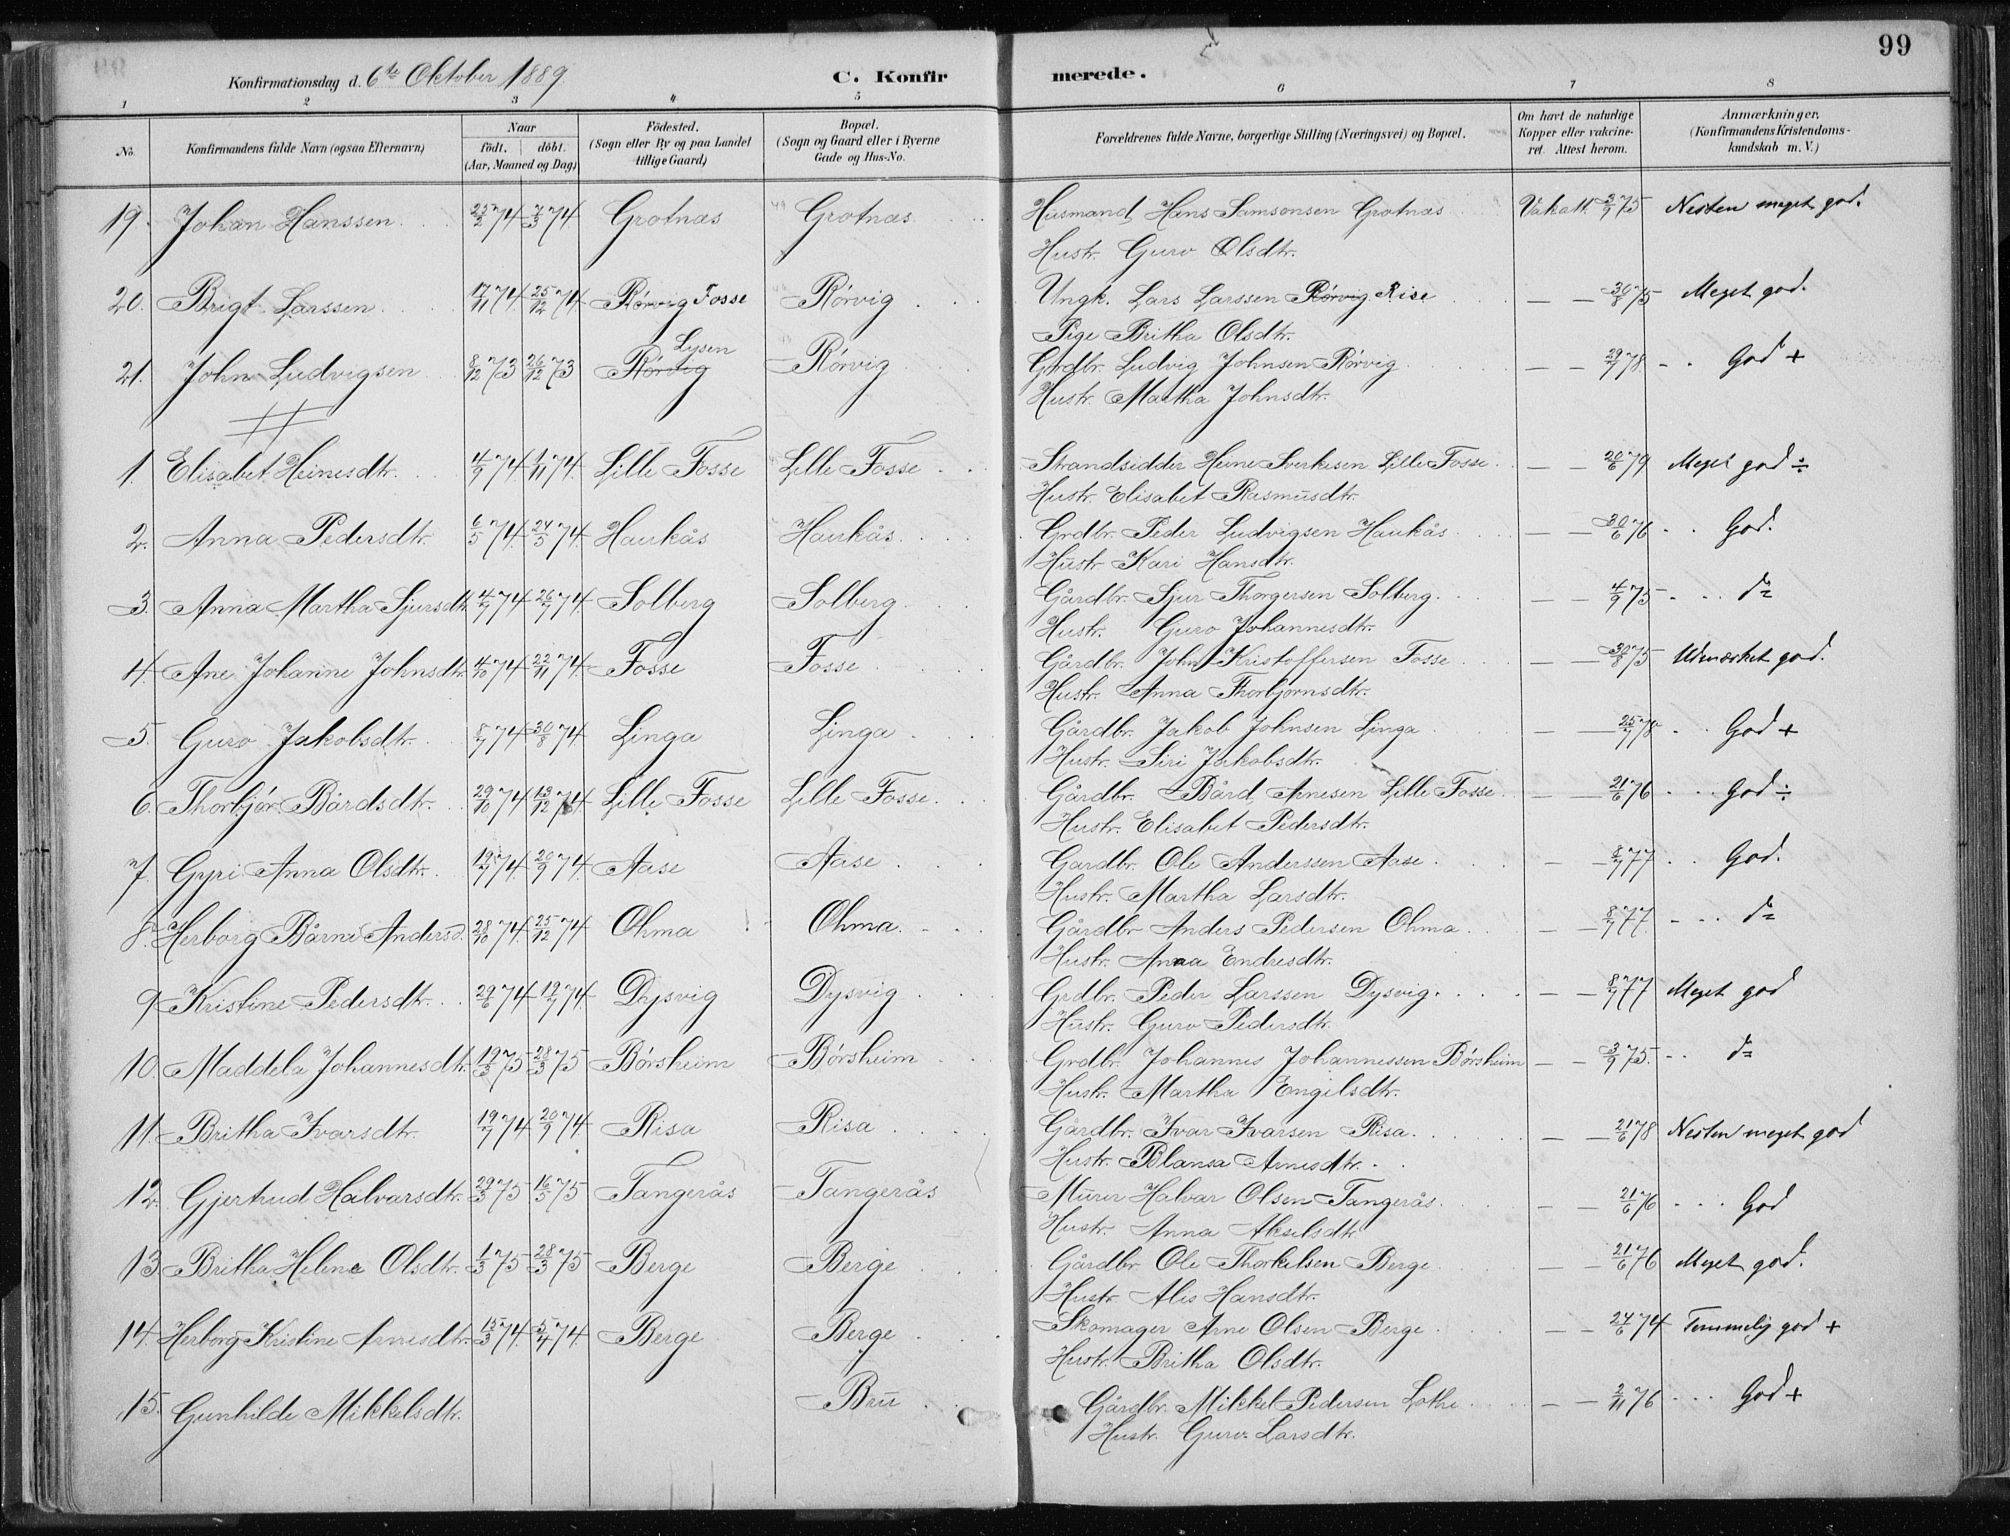 99
Konfirmationsdag d. 6te Oktober 1889. C. Konfirmerede.
1 2 3 4 5 6 7 8
No. Konfirmandens fulde Navn (ogsaa Efternavn) Naar født, døbt. (Aar, Maaned og Dag) Fødested. (Sogn eller By og paa Landet tillige Gaard) Bopæl. (Sogn og Gaard eller i Byerne Gade og Hus-No. Forældrenes fulde Navne, borgerlige Stilling (Næringsvei) og Bopæl. Om havt de naturlige Kopper eller vakcineret. Attest herom. Anmærkninger. (Konfirmandens Kristendomskundskab m. V.)
19. Johan Hanssen. 25/2 74 7/3 74 Grotnæs Grotnæs. Husmand Hans Samsonsen Grotnæs Vak.att. 3/9 75 Nesten meget god.
Hustr. Guro Olsdtr.
20. Brigt Larssen. 17/11 74 25/12 74 Rørvig Fosse Rørvig Ungk. Lars Larssen Rørvig Rise — — 30/8 75 Meget god.
Pige Britha Olsdtr.
21. John Ludvigsen 8/12 73 26/12 73 Rørvig Lysen Rørvig Grdbr. Ludvig Johnsen Rørvig — — 29/7 78 - . God +
Hustr. Martha Johnsdtr.
1. Elisabet Heinesdtr. 4/9 74 1/11 74. Lille Fosse Lille Fosse Strandsidder Heine Sverkesen Lille Fosse — — 20/6 79 Meget god ÷
Hustr. Elisabet Rasmusdtr.
2. Anna Pedersdtr. 6/5 74. 24/5 74. Haukås Haukås. Grdbr. Peder Ludvigsen Haukås — — 30/6 76 - . God.
Hustr Kari Hansdtr.
3. Anna Martha Sjursdtr. 4/7 74 26/7 74. Solberg Solberg Gårdbr. Sjur Thorgersen Solberg. — — 4/9 75 - . . do
Hustr. Guro Johannesdtr.
4. Ane Johanne Johnsdtr. 4/10 74 22/11 74. Fosse Fosse Gårdbr. John Kristoffersen Fosse — — 30/8 75 Udmærket god.
Hustr. Anna Thorbjørnsdtr.
5. Guro Jakobsdtr. 8/7 74 30/8 74 Linga Linga Gårdbr. Jakob Johnsen Linga — — 25/7 78 - . God +
Hustr. Siri Jakobsdtr.
6. Thorbjør Bårdsdtr. 29/10 74 13/12 74. Lille Fosse Lille Fosse. Gårdbr. Bård Arnesen Lille Fosse — — 21/6 76 - . . God ÷
Hustr. Elisabet Pedersdtr.
7. Gyri Anna Olsdtr. 19/7 74. 20/9 74. Aase Aase Gardbr. Ole Anderssen Aase. — — 8/7 77 . . God.
Hustr. Martha Larsdtr.
8. Herborg Bårne Andersd. 28/10 74. 25/12 74 Ohma Ohma. Gårdbr Anders Pedersen Ohma — — 8/7 77. - . . do
Hustr. Anna Endresdtr.
9 Kristine Pedersdtr. 29/6 74 19/7 74 Dysvig Dysvig Grdbr. Peder Larssen Dysvig. — — 8/7 77 Meget god
Hustr. Guro Pedersdtr.
10. Maddela Johannesdtr. 19/3 75 28/3 75 Børsheim Børsheim Grdbr. Johannes Johannessen Børsheim — — 3/9 75. - . do
Hustr. Martha Engelsdtr.
11. Britha Ivarsdtr. 19/7 74 20/9 74. Risa Risa Gårdbr. Ivar Ivarsen Risa. — — 21/6 78 Nesten meget god
Hustr. Blansa Arnesdtr.
12. Gjertrud Halvarsdtr. 29/3 75 16/5 75 Tangerås Tangerås Murer Halvar Olsen Tangerås. — — 21/6 76 - . . . God
Hustr. Anna Akselsdtr
13. Britha Helene Olsdtr. 1/3 75 28/3 75 Berge Berge Gårdbr Ole Thorkelsen Berge — — 21/6 76 Meget god.
Hustr. Alis Hansdtr.
14. Herborg Kristine Arnesdtr. 15/3 74. 5/4 74. Berge Berge Skomager Arne Olsen Berge — — 27/6 74 Temmelig god +
Hustr. Britha Olsdtr.
15. Gunhilde Mikkelsdtr. Bru Gårdbr. Mikkel Pedersen Lothe — — 2/11 76 - . . God +
Hustr. Guro Larsdtr.